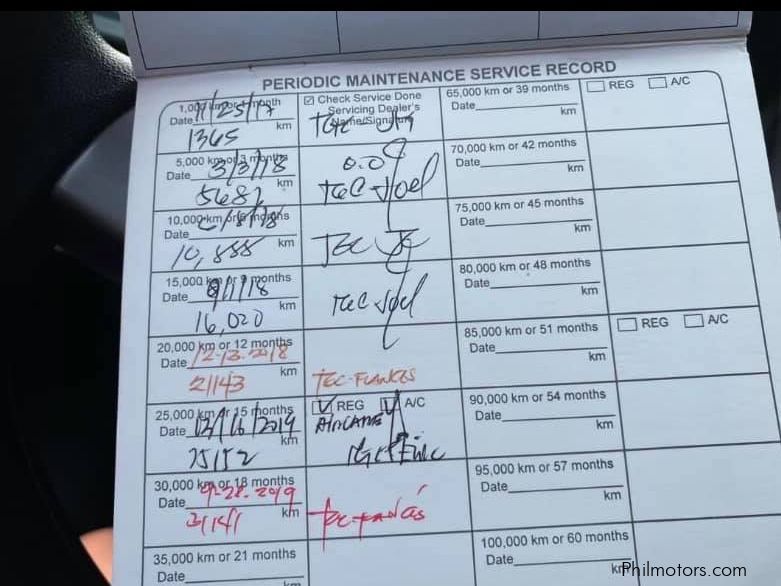 PERIODIC MAINTENANCE SERVICE RECORD
1,000 km or 1 month
Date 11/25/17
1365 km
Check Service Done
Servicing Dealer's
Name/Signature
5,000 km or 3 months
Date 3/3/18
5682 km
Tec Joel
10,000 km or 6 months
Date
10,888 km
Tec
15,000 km or 9 months
Date
16,020 km
Tec Joel
20,000 km or 12 months
Date 12-13-2018
21143 km
TEC-
25,000 km or 15 months
Date 03/16/2019
25152 km
REG A/C
30,000 km or 18 months
Date 9-28-2019
31141 km
35,000 km or 21 months
Date
km
65,000 km or 39 months
Date
km
REG A/C
70,000 km or 42 months
Date
km
75,000 km or 45 months
Date
km
80,000 km or 48 months
Date
km
85,000 km or 51 months
Date
km
REG A/C
90,000 km or 54 months
Date
km
95,000 km or 57 months
Date
km
100,000 km or 60 months
Date
km
Philmotors.com